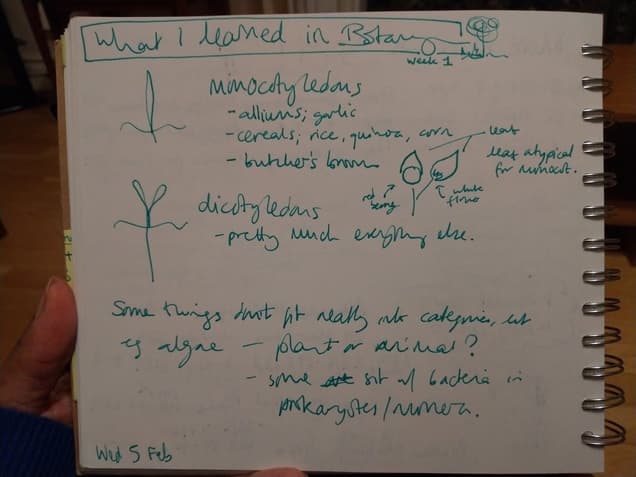 What I learned in Botany
week 1
monocotyledons
- alliums; garlic
- cereals; rice, quinoa, corn
- butcher's broom
leaf
leaf atypical
for monocot.
red
berry
white
flower
dicotyledons
- pretty much everything else.
Some things don't fit neatly into categories,
eg algae — plant or animal?
- some sit w/ bacteria in
prokaryotes/monera.
Wed 5 Feb